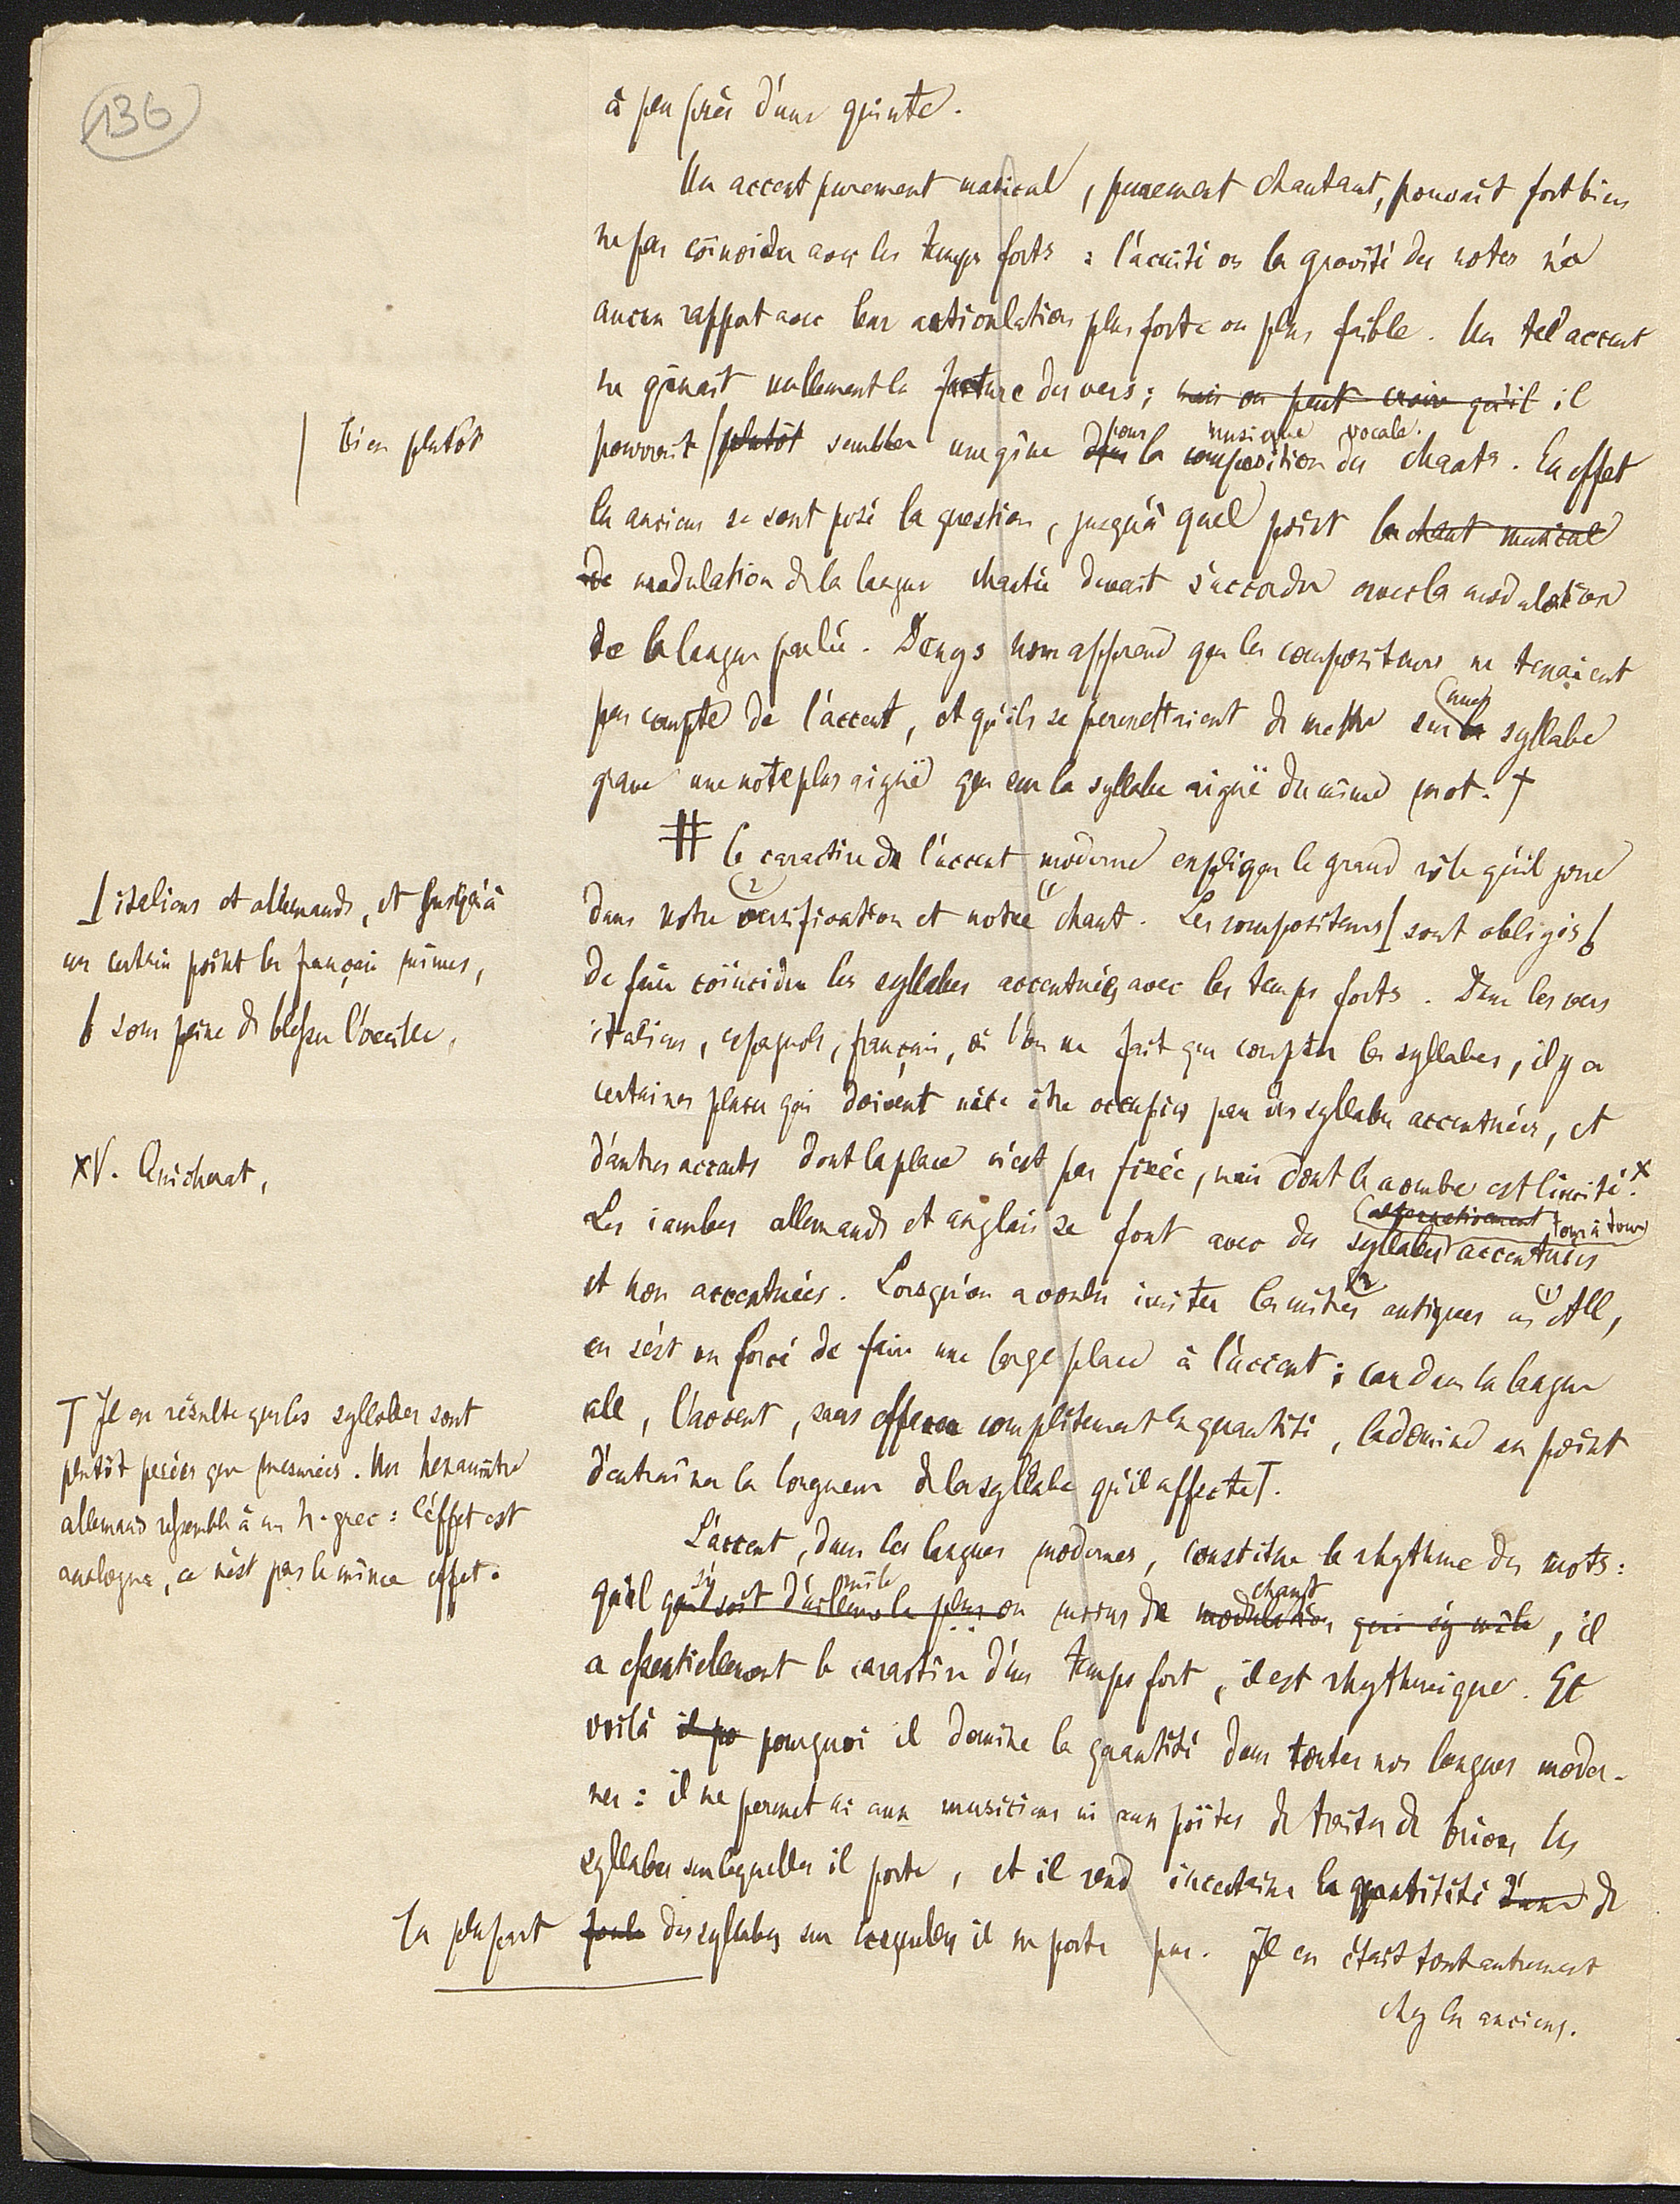 136
à peu près d'une quinte.
Un accent purement musical, purement chantant, pouvait fort bien
ne pas coïncider avec les temps forts : l'acuité ou la gravité des notes n'a
aucun rapport avec leur articulation plus forte ou plus faible. Un tel accent
ne gênait nullement la facture des vers ; mais on peut croire qu'il il
bien plutôt
pour musique vocale.
pouvait plutôt sembler une gêne dans la composition des chants. En effet
les anciens se sont posé la question, jusqu'à quel point le chant musical
de modulation de la langue chantée devait s'accorder avec la modulation
de la langue parlée. Denys nous apprend que les compositeurs ne tenaient
une
pas compte de l'accent, et qu'ils se permettaient de mettre sur la syllabe
grave une note plus aiguë que sur la syllabe aiguë du même mot. †
# Le caractère de l'accent moderne explique le grand rôle qu'il joue
dans notre (2) versification et notre (1) chant. Les compositeurs sont obligés
italiens et allemands, et jusqu'à
un certain point les français mêmes,
sous peine de blesser l'oreille,
de faire coïncider les syllabes accentuées avec les temps forts. Dans les vers
italiens, espagnols, français, où l'on ne fait que compter les syllabes, il y a
certaines places qui doivent néce être occupées par des syllabes accentuées, et
d'autres accents dont la place n'est pas fixée, mais dont le nombre est limité. x
x V. Quicherat,
alternativement tour à tour
Les iambes allemands et anglais se font avec des syllabes accentuées
et non accentuées. Lorsqu'on a voulu imiter les mètres (2) antiques en (1) All,
on s'est vu forcé de faire une large place à l'accent ; car dans la langue
all, l'accent, sans effacer complètement la quantité, la domine au point
d'entraîner la longueur de la syllabe qu'il affecte T.
T Il en résulte que les syllabes sont
plutôt pesées que mesurées. Un hexamètre
allemand ressemble à un h. grec : l'effet est
analogue, ce n'est pas le même effet.
L'accent, dans les langues modernes, constitue le rhythme des mots :
s'y mêle chant
qu'il que soit d'ailleurs le plus ou moins de modulation qui s'y mêle, il
a essentiellement le caractère d'un temps fort, il est rhythmique. Et
voilà il po pourquoi il domine la quantité dans toutes nos langues moder-
nes : il ne permet ni aux musiciens ni aux poëtes de traiter de brèves les
syllabes sur lesquelles il porte, et il rend incertaine la quantitité d'une de
la plupart
foule des syllabes sur lesquelles il ne porte pas. Il en était tout autrement
chez les anciens.